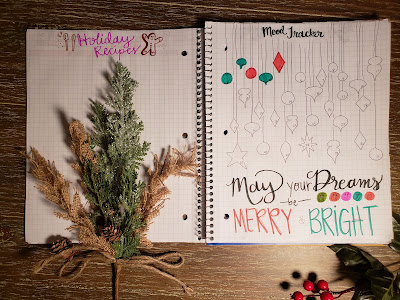 Holiday
Recipes
Mood Tracker
May your Dreams
be
MERRY & BRIGHT